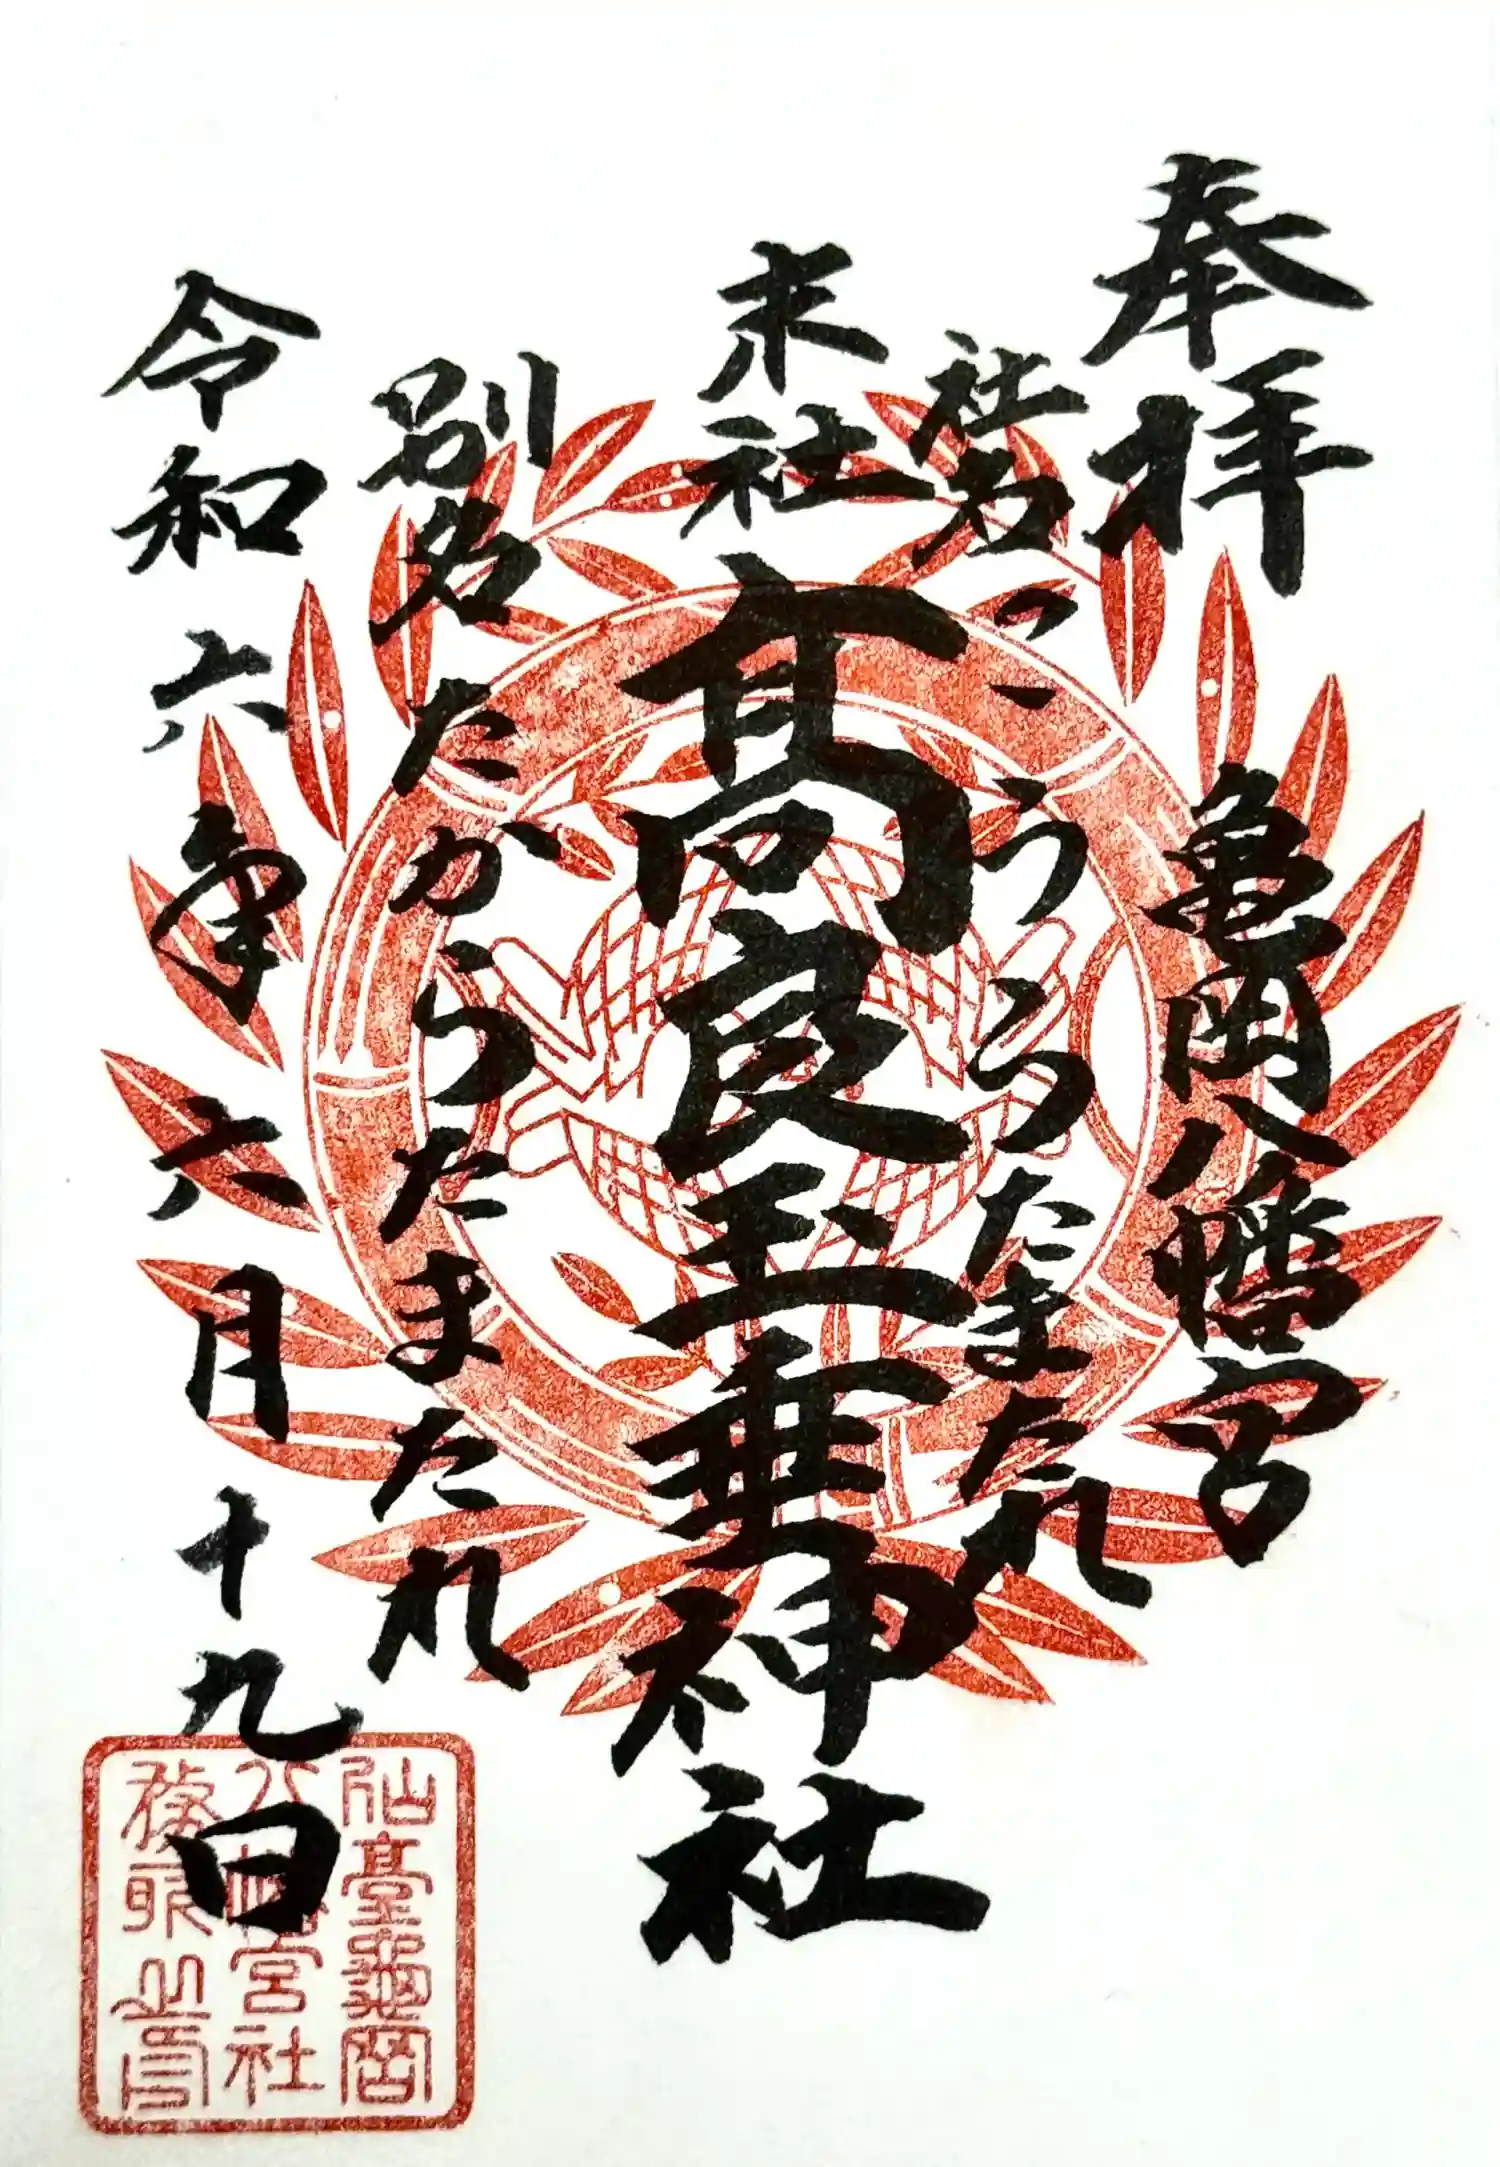 奉拝
亀岡八幡宮
社名 こうらたまたれ
末社 髙良玉垂神社
別名 たからたまたれ
令和六年六月十九日
仙臺龜岡
八幡宮社
務所之印